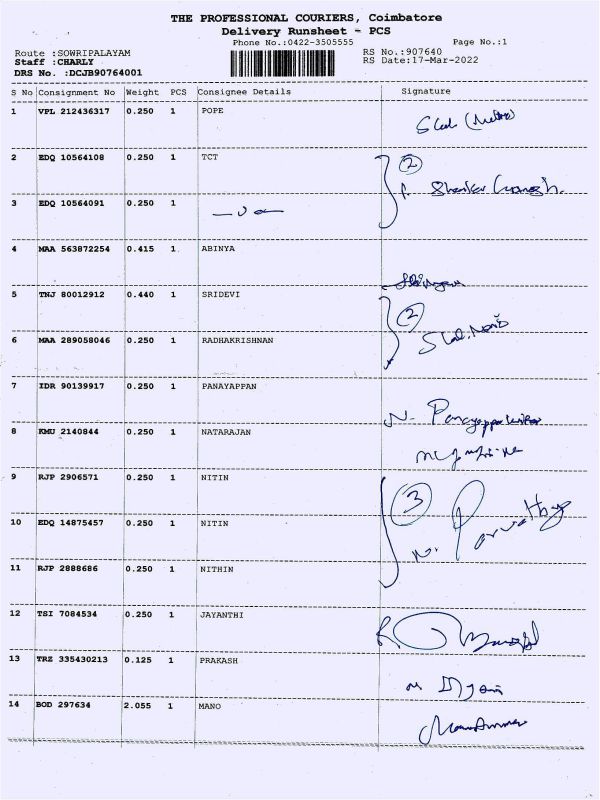 THE PROFESSIONAL COURIERS, Coimbatore
Delivery Runsheet - PCS
Phone No.:0422-3505555 Page No.:1
Route :SOWRIPALAYAM RS No.:907640
Staff :CHARLY RS Date:17-Mar-2022
DRS No. :DCJB90764001
S No Consignment No Weight PCS Consignee Details Signature
1 VPL 212436317 0.250 1 POPE
2 EDQ 10564108 0.250 1 TCT 2
3 EDQ 10564091 0.250 1
4 MAA 563872254 0.415 1 ABINYA
5 TNJ 80012912 0.440 1 SRIDEVI 2
6 MAA 289058046 0.250 1 RADHAKRISHNAN
7 IDR 90139917 0.250 1 PANAYAPPAN N.
8 KMU 2140844 0.250 1 NATARAJAN
9 RJP 2906571 0.250 1 NITIN 3
10 EDQ 14875457 0.250 1 NITIN N. Parvathy
11 RJP 2888686 0.250 1 NITHIN
12 TSI 7084534 0.250 1 JAYANTHI
13 TRZ 335430213 0.125 1 PRAKASH
14 BOD 297634 2.055 1 MANO